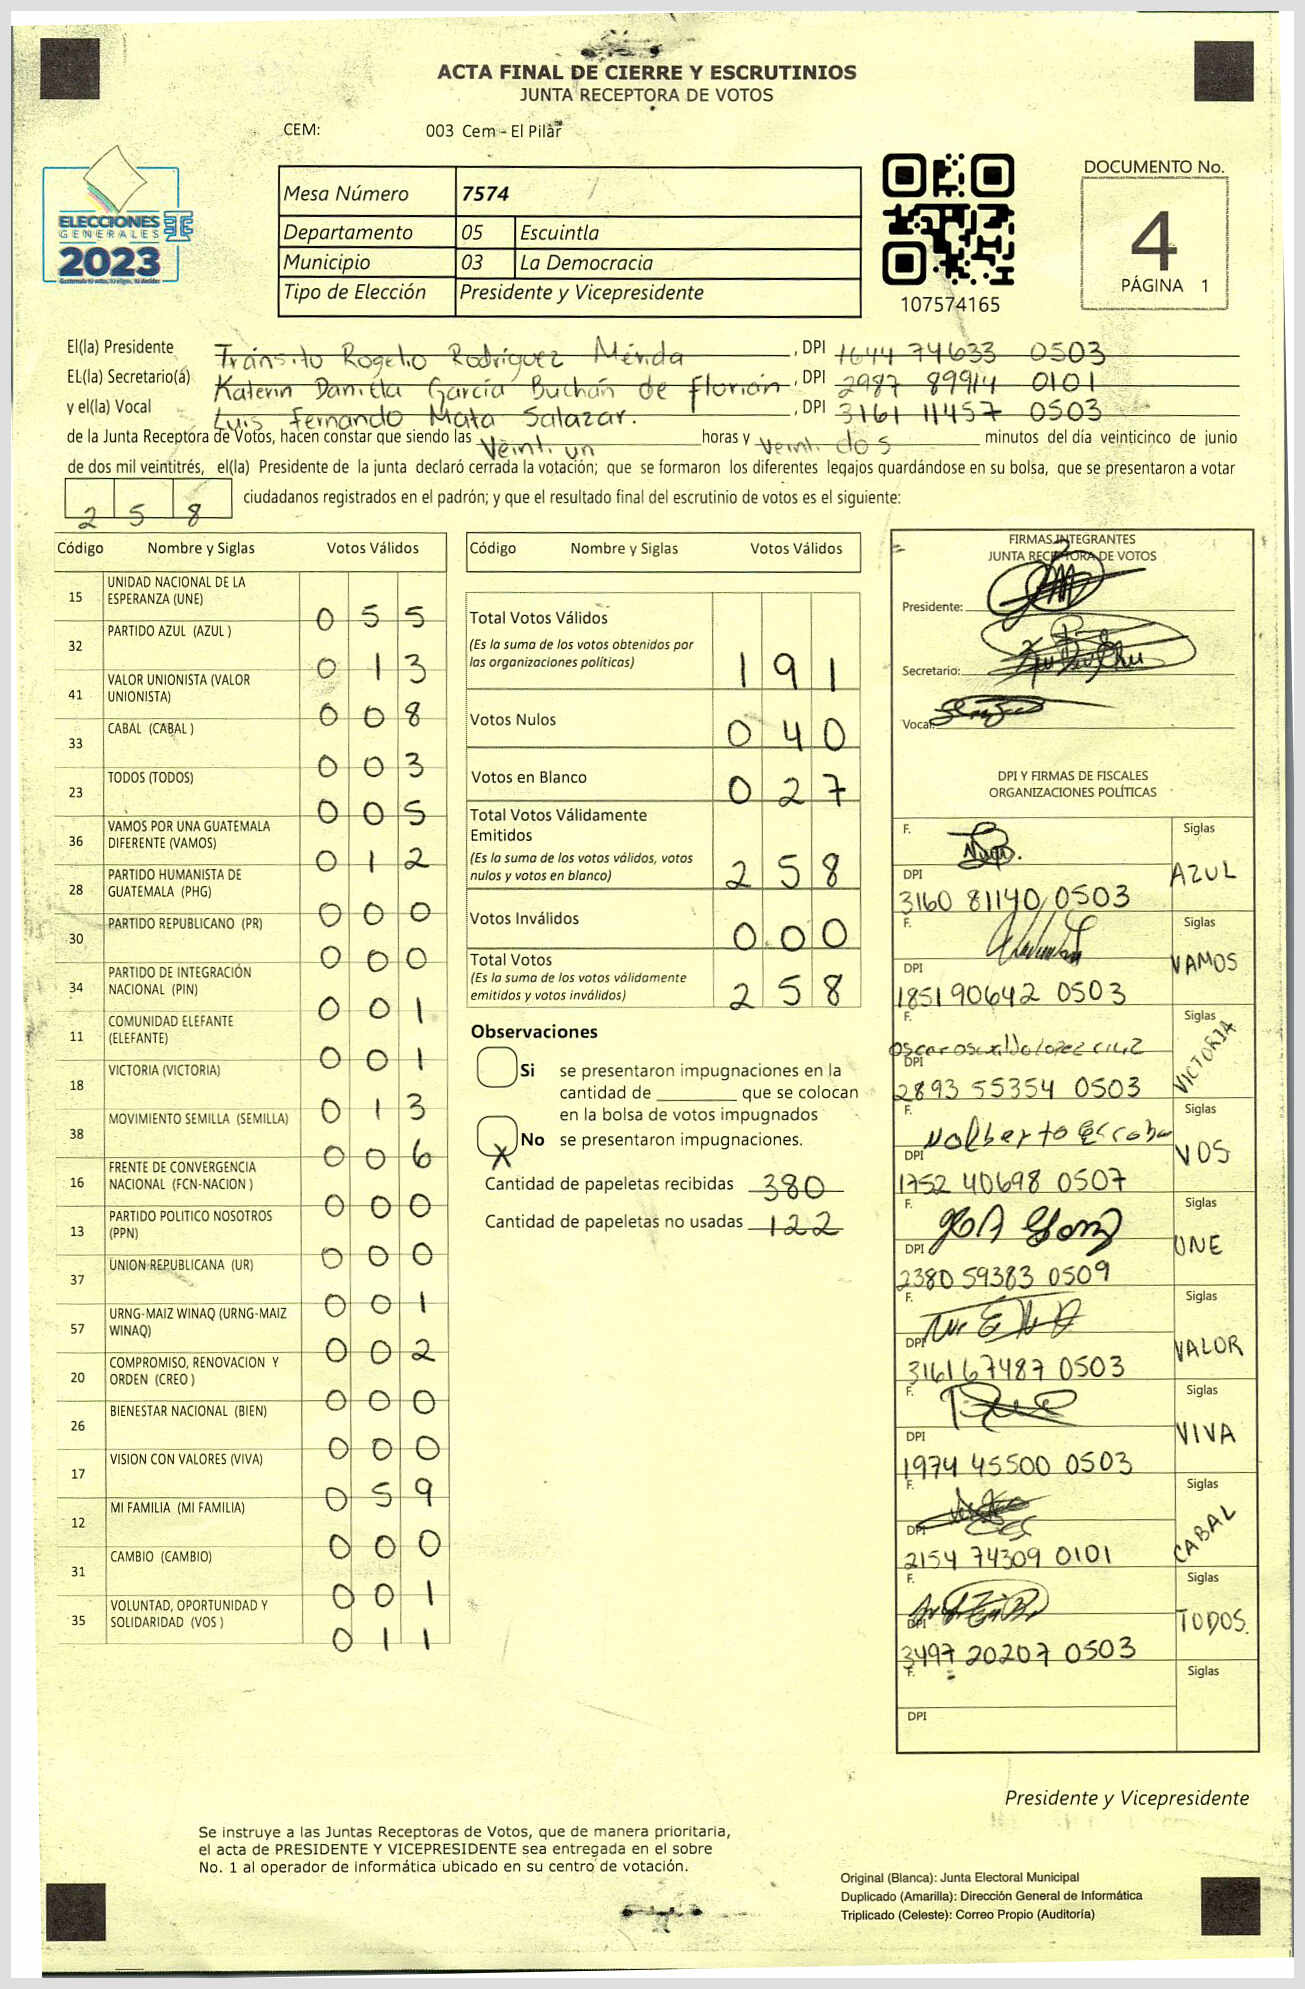 ACTA FINAL DE CIERRE Y ESCRUTINIOS
JUNTA RECEPTORA DE VOTOS
CEM: 003 Cem - El Pilar
ELECCIONES
GENERALES
2023
Mesa Número 7574
Departamento 05 Escuintla
Municipio 03 La Democracia
Tipo de Elección Presidente y Vicepresidente
107574165
DOCUMENTO No.
4
PÁGINA 1
El(la) Presidente Tránsito Rogelio Rodríguez Mérida, DPI 1644 74633 0503
EL(la) Secretario(a) Katerin Daniela García Buchán de Florián, DPI 2987 89914 0101
y el(la) Vocal Luis Fernando Mata Salazar., DPI 3161 11457 0503
de la Junta Receptora de Votos, hacen constar que siendo las Veintiun horas y veintidos minutos del día veinticinco de junio
de dos mil veintitrés, el(la) Presidente de la junta declaró cerrada la votación; que se formaron los diferentes legajos guardándose en su bolsa, que se presentaron a votar
258 ciudadanos registrados en el padrón; y que el resultado final del escrutinio de votos es el siguiente:
Código Nombre y Siglas Votos Válidos
15 UNIDAD NACIONAL DE LA ESPERANZA (UNE) 055
32 PARTIDO AZUL (AZUL ) 013
41 VALOR UNIONISTA (VALOR UNIONISTA) 008
33 CABAL (CABAL ) 003
23 TODOS (TODOS) 005
36 VAMOS POR UNA GUATEMALA DIFERENTE (VAMOS) 012
28 PARTIDO HUMANISTA DE GUATEMALA (PHG) 000
30 PARTIDO REPUBLICANO (PR) 000
34 PARTIDO DE INTEGRACIÓN NACIONAL (PIN) 001
11 COMUNIDAD ELEFANTE (ELEFANTE) 001
18 VICTORIA (VICTORIA) 013
38 MOVIMIENTO SEMILLA (SEMILLA) 006
16 FRENTE DE CONVERGENCIA NACIONAL (FCN-NACION ) 000
13 PARTIDO POLITICO NOSOTROS (PPN) 000
37 UNION REPUBLICANA (UR) 001
57 URNG-MAIZ WINAQ (URNG-MAIZ WINAQ) 002
20 COMPROMISO, RENOVACION Y ORDEN (CREO ) 000
26 BIENESTAR NACIONAL (BIEN) 000
17 VISION CON VALORES (VIVA) 059
12 MI FAMILIA (MI FAMILIA) 000
31 CAMBIO (CAMBIO) 001
35 VOLUNTAD, OPORTUNIDAD Y SOLIDARIDAD (VOS ) 011
Código Nombre y Siglas Votos Válidos
Total Votos Válidos 191
(Es la suma de los votos obtenidos por
las organizaciones políticas)
Votos Nulos 040
Votos en Blanco 027
Total Votos Válidamente
Emitidos 258
(Es la suma de los votos válidos, votos
nulos y votos en blanco)
Votos Inválidos 0.00
Total Votos 258
(Es la suma de los votos válidamente
emitidos y votos inválidos)
Observaciones
Si se presentaron impugnaciones en la
cantidad de ________ que se colocan
en la bolsa de votos impugnados
X No se presentaron impugnaciones.
Cantidad de papeletas recibidas 380
Cantidad de papeletas no usadas 122
FIRMAS INTEGRANTES
JUNTA RECEPTORA DE VOTOS
Presidente:
Secretario:
Vocal:
DPI Y FIRMAS DE FISCALES
ORGANIZACIONES POLÍTICAS
F. Siglas AZUL
DPI 3160 81140 0503
F. Siglas VAMOS
DPI 1851 90642 0503
F. Siglas VICTORIA
DPI 2893 55354 0503
F. Nolberto Escobar Siglas VOS
DPI 1752 40698 0507
F. Siglas UNE
DPI 2380 59383 0509
F. Siglas VALOR
DPI 3161 67487 0503
F. Siglas VIVA
DPI 1974 45500 0503
F. Siglas CABAL
DPI 2154 74309 0101
F. Siglas TODOS.
DPI 3497 20207 0503
F. Siglas
DPI
Presidente y Vicepresidente
Se instruye a las Juntas Receptoras de Votos, que de manera prioritaria,
el acta de PRESIDENTE Y VICEPRESIDENTE sea entregada en el sobre
No. 1 al operador de informática ubicado en su centro de votación.
Original (Blanca): Junta Electoral Municipal
Duplicado (Amarilla): Dirección General de Informática
Triplicado (Celeste): Correo Propio (Auditoría)